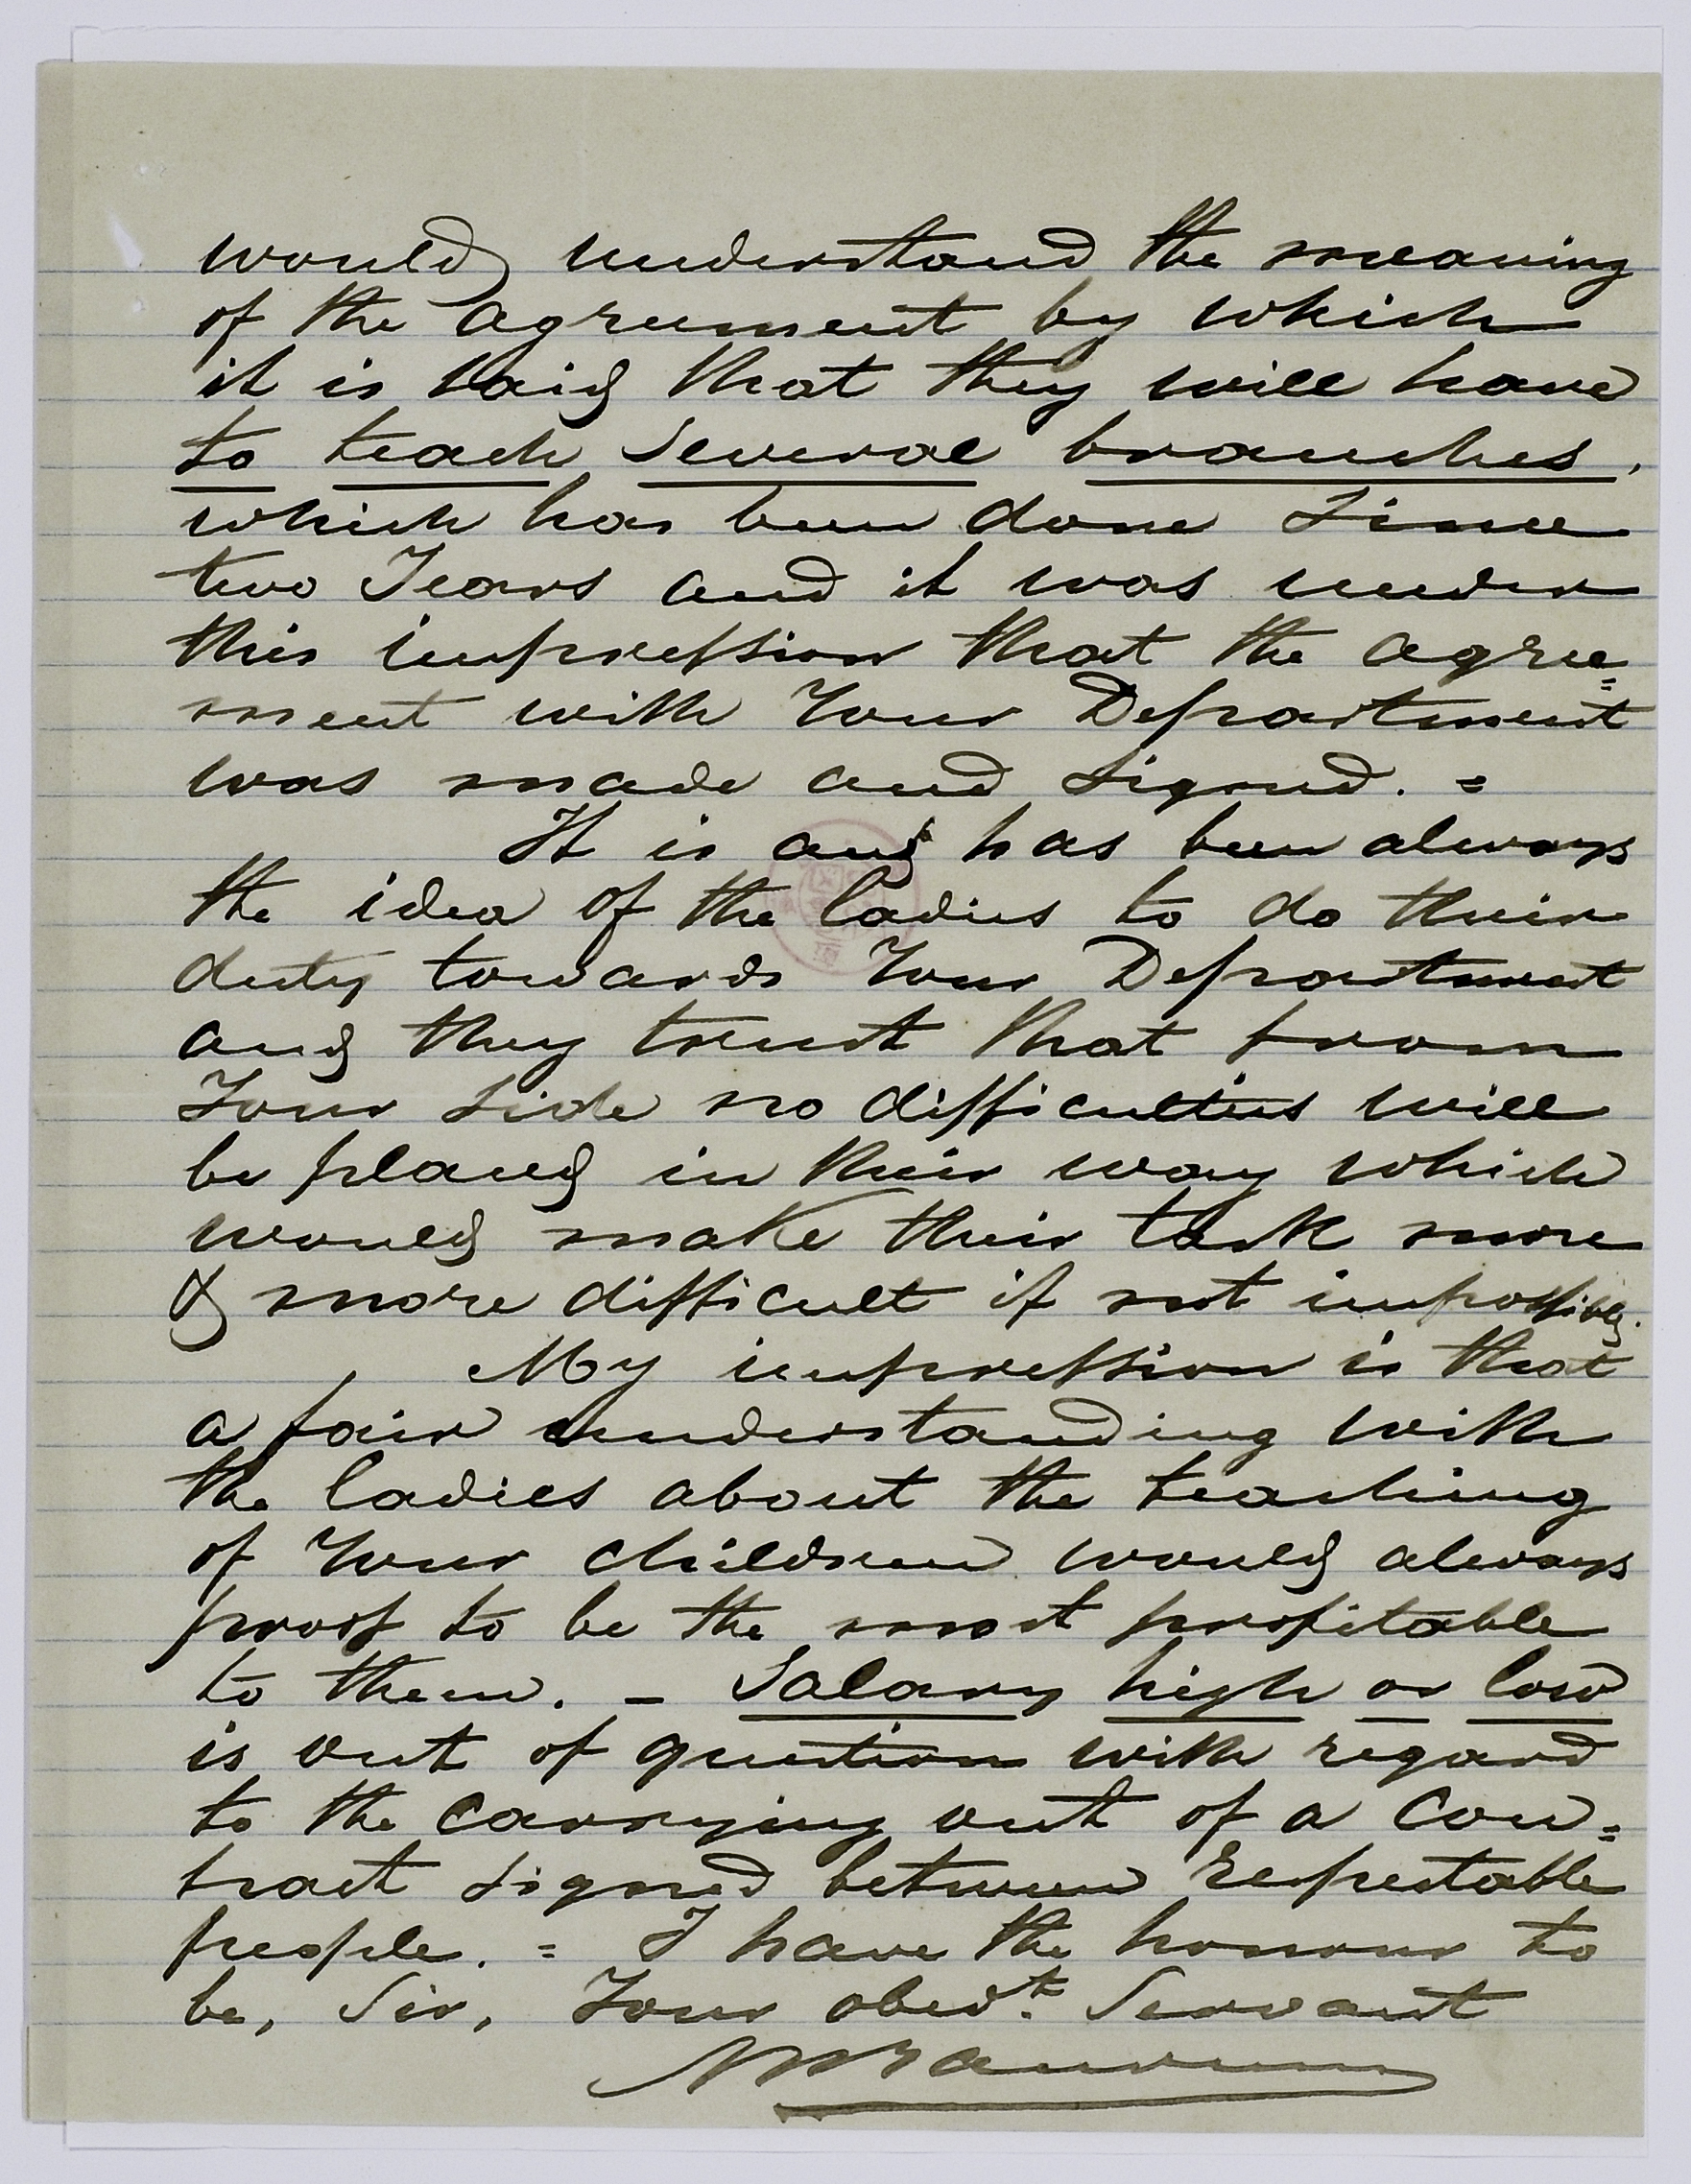 would understand the meaning
of the agreement by which
it is said that they will have
to teach several branches,
which has been done since
two Years and it was under
this impression that the agree=
ment with Your Department
was made and signed. =
It is and has been always
the idea of the ladies to do their
duty towards Your Department
and they trust that from
Your side no difficulties will
be placed in their way which
would make their task more
& more difficult if not impossible.
My impression is that
a fair understanding with
the ladies about the teaching
of Your children would always
proof to be the most profitable
to them. – Salary high or low
is out of question with regard
to the carrying out of a Con=
tract signed between respectable
people. = I have the honour to
be, Sir, Your obedt. Servant